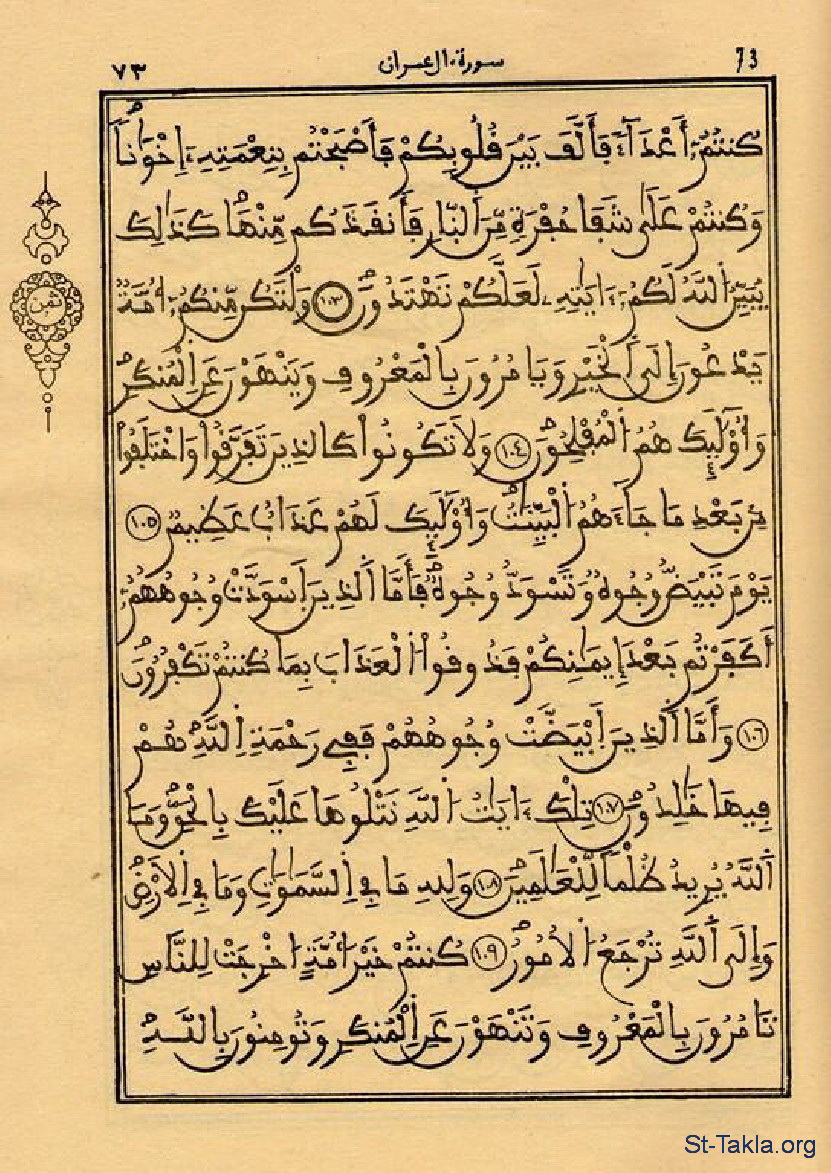 ٧٣ سورة ءال عمران 73
كُنتُمُۥٓ أَعْدَآءً فَأَلَّفَ بَيْنَ قُلُوبِكُمْ فَأَصْبَحْتُم بِنِعْمَتِهِۦٓ إِخْوَٰناً
وَكُنتُمْ عَلَىٰ شَفَا حُفْرَةٍ مِّنَ اَ۬لنّ۪ارِ فَأَنقَذَكُم مِّنْهَاۖ كَذَٰلِكَ
يُبَيِّنُ اُ۬للَّهُ لَكُمُۥٓ ءَايَٰتِهِۦ لَعَلَّكُمْ تَهْتَدُونَۖ ١٠٣ وَلْتَكُن مِّنكُمُۥٓ أُمَّةٌ
يَدْعُونَ إِلَى اَ۬لْخَيْرِ وَيَامُرُونَ بِالْمَعْرُوفِ وَيَنْهَوْنَ عَنِ اِ۬لْمُنكَرِۖ
وَأُوْلَٰٓئِكَ هُمُ اُ۬لْمُفْلِحُونَۖ ١٠٤ وَلَا تَكُونُواْ كَالذِينَ تَفَرَّقُواْ وَاخْتَلَفُواْ
مِنۢ بَعْدِ مَا جَآءَهُمُ اُ۬لْبَيِّنَٰتُۖ وَأُوْلَٰٓئِكَ لَهُمْ عَذَابٌ عَظِيمٌ ١٠٥
يَوْمَ تَبْيَضُّ وُجُوهٌ وَتَسْوَدُّ وُجُوهٌۖ فَأَمَّا اَ۬لذِينَ اَ۪سْوَدَّتْ وُجُوهُهُمُۥٓ
أَكَفَرْتُم بَعْدَ إِيمَٰنِكُمْ فَذُوقُواْ اُ۬لْعَذَابَ بِمَا كُنتُمْ تَكْفُرُونَۖ
١٠٦ وَأَمَّا اَ۬لذِينَ اَ۪بْيَضَّتْ وُجُوهُهُمْ فَفِے رَحْمَةِ اِ۬للَّهِۖ هُمْ
فِيهَا خَٰلِدُونَۖ ١٠٧ تِلْكَ ءَايَٰتُ اُ۬للَّهِ نَتْلُوهَا عَلَيْكَ بِالْحَقِّۖ وَمَا
اَ۬للَّهُ يُرِيدُ ظُلْماً لِّلْعَٰلَمِينَۖ ١٠٨ وَلِلهِ مَا فِے اِ۬لسَّمَٰوَٰتِ وَمَا فِے اِ۬لَارْضِۖ
وَإِلَى اَ۬للَّهِ تُرْجَعُ اُ۬لُامُورُۖ ١٠٩ كُنتُمْ خَيْرَ أُمَّةٍ ا۟خْرِجَتْ لِلنَّاسِ
تَامُرُونَ بِالْمَعْرُوفِ وَتَنْهَوْنَ عَنِ اِ۬لْمُنكَرِ وَتُومِنُونَ بِاللَّهِۖ
ثمن
St-Takla.org